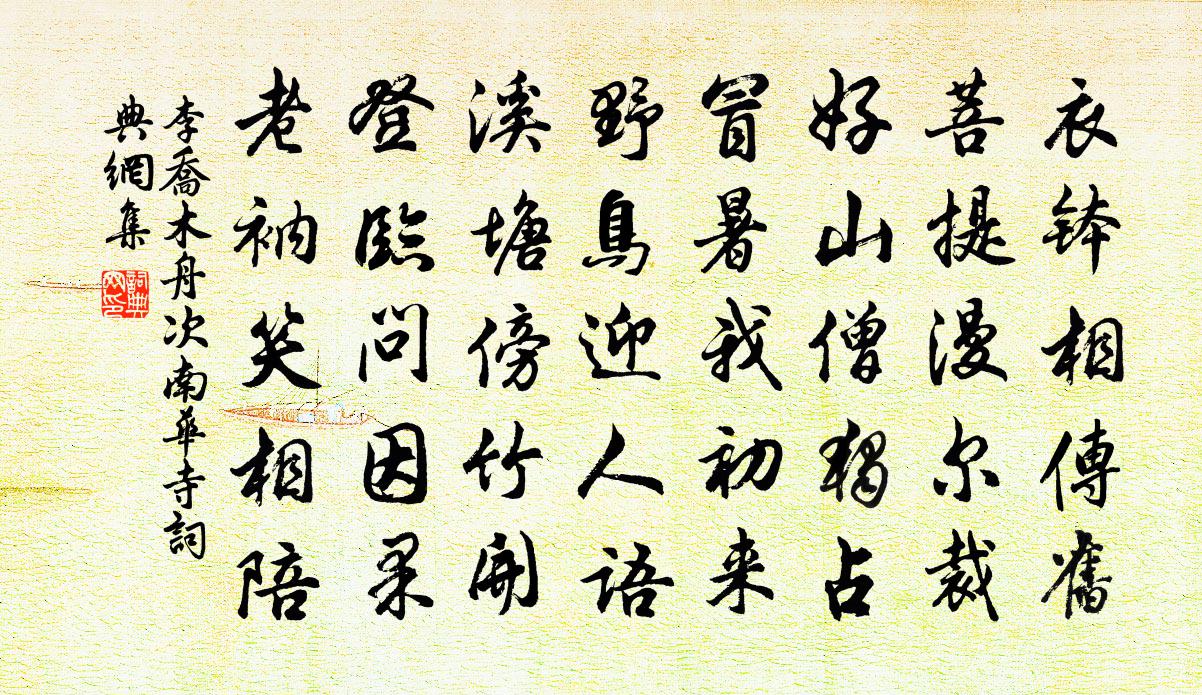 衣钵相傳舊
菩提漫尔裁
好山僧獨占
冒暑我初来
野鳥迎人語
溪塘傍竹開
登臨問因果
老衲笑相陪
李喬木舟次南華寺詞
典網集
詞典網印